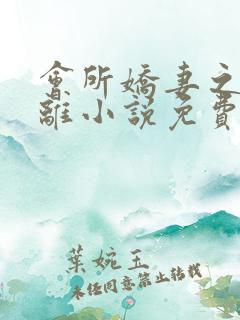 會所嬌妻之
離小說免費
葉婉玉
未经同意禁止转载